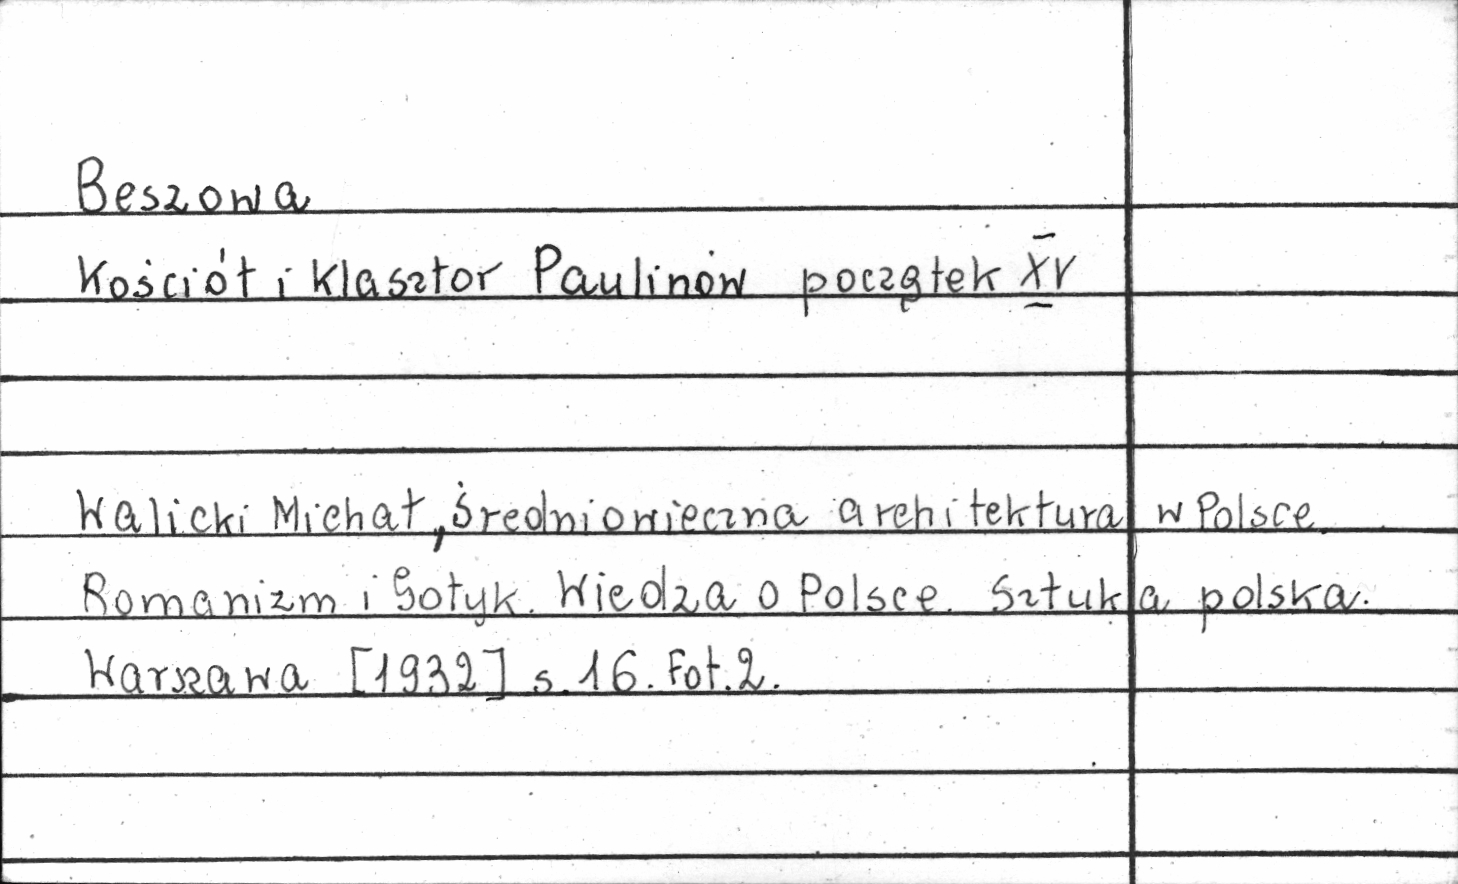 Beszowa
Kościół i klasztor Paulinów początek XV
Walicki Michał, Średniowieczna architektura w Polsce.
Romanizm i Gotyk. Wiedza o Polsce. Sztuka polska.
Warszawa [1932] s. 16. Fot. 2.